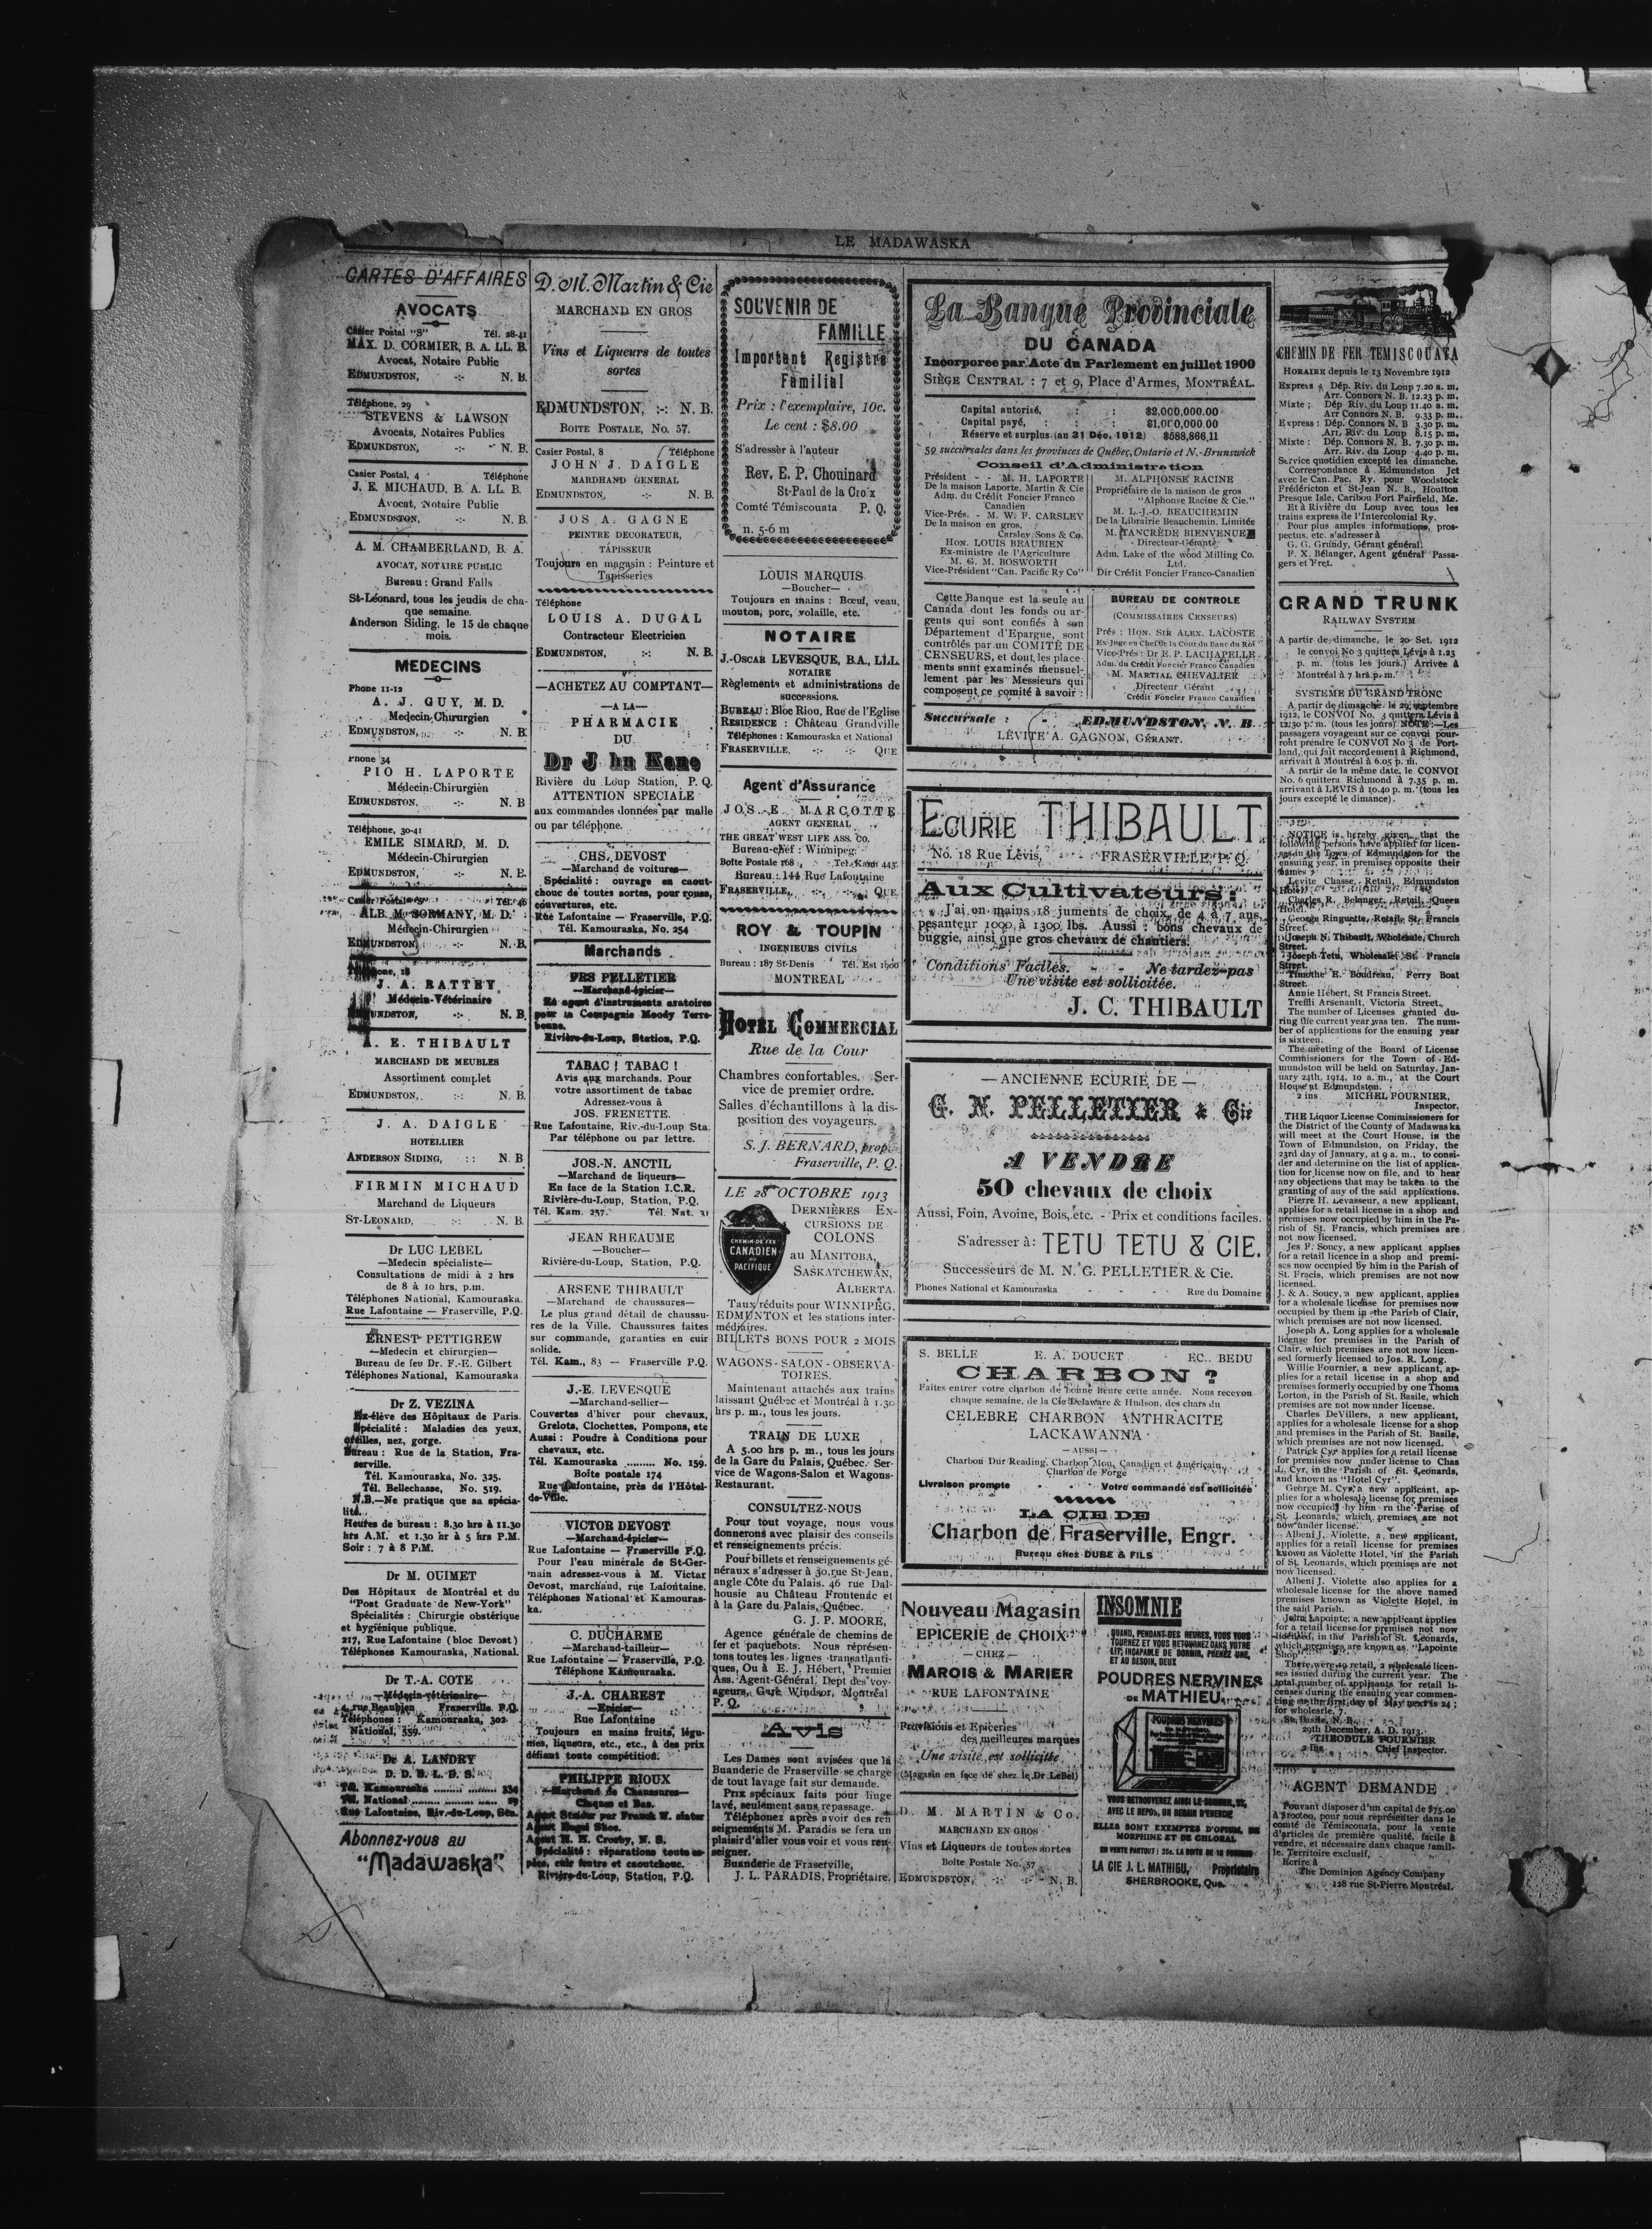 LE MADAWASKA
CARTES D'AFFAIRES
AVOCATS
Casier Postal "S" Tél. 28-41
MAX. D. CORMIER, B. A. LL. B.
Avocat, Notaire Public
EDMUNDSTON, -:- N. B.
Téléphone, 29
STEVENS & LAWSON
Avocats, Notaires Publics
EDMUNDSTON, N. B.
Casier Postal, 4 Téléphone
J. E. MICHAUD, B. A. LL. B.
Avocat, Notaire Public
EDMUNDSTON, -:- N. B.
A. M. CHAMBERLAND, B. A.
AVOCAT, NOTAIRE PUBLIC
Bureau : Grand Falls
St-Léonard, tous les jeudis de cha-
que semaine.
Anderson Siding, le 15 de chaque
mois.
MEDECINS
Phone 11-12
A. J. GUY, M. D.
Medecin-Chirurgien
EDMUNDSTON, -:- N. B.
Phone 34
PIO H. LAPORTE
Médecin-Chirurgien
EDMUNDSTON. -:- N. B
Téléphone, 30-41
EMILE SIMARD, M. D.
Médecin-Chirurgien
EDMUNDSTON, -:- N. B.
Casier Postal Tél. 46
ALB. M. SORMANY, M. D.
Médecin-Chirurgien
EDMUNDSTON, -:- N. B.
Téléphone, 18
J. A. RATTEY
Médecin-Vétérinaire
EDMUNDSTON, -:- N. B.
A. E. THIBAULT
MARCHAND DE MEUBLES
Assortiment complet
EDMUNDSTON, :-: N. B.
J. A. DAIGLE
HOTELLIER
ANDERSON SIDING, : : N. B
FIRMIN MICHAUD
Marchand de Liqueurs
ST-LEONARD, -:- N. B.
Dr LUC LEBEL
—Medecin spécialiste—
Consultations de midi à 2 hrs
de 8 à 10 hrs, p.m.
Téléphones National, Kamouraska.
Rue Lafontaine — Fraserville, P.Q.
ERNEST PETTIGREW
—Medecin et chirurgien—
Bureau de feu Dr. F.-E. Gilbert
Téléphones National, Kamouraska
Dr Z. VEZINA
Ex-élève des Hôpitaux de Paris.
Spécialité : Maladies des yeux,
oreilles, nez, gorge.
Bureau : Rue de la Station, Fra-
serville.
Tél. Kamouraska, No. 325.
Tél. Bellechasse, No. 519.
N.B.—Ne pratique que sa spécia-
lité.
Heures de bureau : 8.30 hrs à 11.30
hrs A.M. et 1.30 hr à 5 hrs P.M.
Soir : 7 à 8 P.M.
Dr M. OUIMET
Des Hôpitaux de Montréal et du
"Post Graduate de New-York"
Spécialités : Chirurgie obstérique
et hygiénique publique.
217, Rue Lafontaine (bloc Devost)
Téléphones Kamouraska, National.
Dr T.-A. COTE
—Médecin-vétérinaire—
rue Beaubien Fraserville P.Q.
Téléphones : Kamouraska, 302
National, 359.
Dr A. LANDRY
D. D. S. L. D. S.
Tél. Kamouraska ........ ........ 334
Tél. National ........ ........ 89
Rue Lafontaine, Riv.-du-Loup, Sta.
Abonnez-vous au
"Madawaska"
D. M. Martin & Cie
MARCHAND EN GROS
Vins et Liqueurs de toutes
sortes
EDMUNDSTON, :-: N. B.
BOITE POSTALE, No. 57.
Casier Postal, 8 Téléphone
JOHN J. DAIGLE
MARDHAND GENERAL
EDMUNDSTON, -:- N. B.
JOS A. GAGNE
PEINTRE DECORATEUR,
TAPISSEUR
Toujours en magasin : Peinture et
Tapisseries
Téléphone
LOUIS A. DUGAL
Contracteur Electricien
EDMUNDSTON, :-: N. B.
—ACHETEZ AU COMPTANT—
—A LA—
PHARMACIE
DU
Dr J hn Kane
Rivière du Loup Station, P. Q.
ATTENTION SPECIALE
aux commandes données par malle
ou par téléphone.
CHS. DEVOST
—Marchand de voitures—
Spécialité : ouvrage en caout-
chouc de toutes sortes, pour roues,
couvertures, etc.
Rue Lafontaine — Fraserville, P.Q.
Tél. Kamouraska, No. 254
Marchands
FRS PELLETIER
—Marchand-épicier—
Et agent d'instruments aratoires
pour la Compagnie Moody Terre-
bonne.
Rivière-du-Loup, Station, P.Q.
TABAC ! TABAC !
Avis aux marchands. Pour
votre assortiment de tabac
Adressez-vous à
JOS. FRENETTE.
Rue Lafontaine, Riv.-du-Loup Sta.
Par téléphone ou par lettre.
JOS.-N. ANCTIL
—Marchand de liqueurs—
En face de la Station I.C.R.
Rivière-du-Loup, Station, P.Q.
Tél. Kam. 257. Tél. Nat. 21
JEAN RHEAUME
—Boucher—
Rivière-du-Loup, Station, P.Q.
ARSENE THIBAULT
—Marchand de chaussures—
Le plus grand détail de chaussu-
res de la Ville. Chaussures faites
sur commande, garanties en cuir
solide.
Tél. Kam., 83 — Fraserville P.Q.
J.-E. LEVESQUE
—Marchand-sellier—
Couvertes d'hiver pour chevaux,
Grelots, Clochettes, Pompons, etc
Aussi : Poudre à Conditions pour
chevaux, etc.
Tél. Kamouraska ......... No. 159.
Boîte postale 174
Rue Lafontaine, près de l'Hôtel-
de-Ville.
VICTOR DEVOST
—Marchand-épicier—
Rue Lafontaine — Fraserville P.Q.
Pour l'eau minérale de St-Ger-
main adressez-vous à M. Victor
Devost, marchand, rue Lafontaine.
Téléphones National et Kamouras-
ka.
C. DUCHARME
—Marchand-tailleur—
Rue Lafontaine — Fraserville, P.Q.
Téléphone Kamouraska.
J.-A. CHAREST
—Epicier—
Rue Lafontaine
Toujours en mains fruits, légu-
mes, liqueurs, etc., etc., à des prix
défiant toute compétition.
PHILIPPE RIOUX
—Marchand de Chaussures—
Claques et Bas.
Agent Slater par Franck W. slater
Agent Regal Shoe.
Agent W. H. Crosby, N. S.
Spécialité : réparations toute es-
pèce, cuir feutre et caoutchouc.
Rivière-du-Loup, Station, P.Q.
SOUVENIR DE
FAMILLE
Important Registre
Familial
Prix : l'exemplaire, 10c.
Le cent : $8.00
S'adresser à l'auteur
Rev. E. P. Chouinard
St-Paul de la Cro x
Comté Témiscouata P. Q.
n. 5-6 m
LOUIS MARQUIS
—Boucher—
Toujours en mains : Bœuf, veau,
mouton, porc, volaille, etc.
NOTAIRE
J.-OSCAR LEVESQUE, B.A., LL.L
NOTAIRE
Règlements et administrations de
successions.
BUREAU : Bloc Riou, Rue de l'Eglise
RESIDENCE : Château Grandville
Téléphones : Kamouraska et National
FRASERVILLE, -:- -:- QUE
Agent d'Assurance
JOS.-E. MARCOTTE
AGENT GENERAL
THE GREAT WEST LIFE ASS. Co.
Bureau-chef : Winnipeg.
Boîte Postale 168 Tel. Kam 443.
Bureau : 144 Rue Lafontaine
FRASERVILLE, QUE
ROY & TOUPIN
INGENIEURS CIVILS
Bureau : 187 St-Denis Tél. Est 1900
MONTREAL
HOTEL COMMERCIAL
Rue de la Cour
Chambres confortables. Ser-
vice de premier ordre.
Salles d'échantillons à la dis-
position des voyageurs.
S. J. BERNARD, prop.
Fraserville, P. Q.
LE 28 OCTOBRE 1913
DERNIÈRES EX-
CURSIONS DE
COLONS
au MANITOBA,
SASKATCHEWAN,
ALBERTA.
CHEMIN DE FER
CANADIEN
DU
PACIFIQUE
Taux réduits pour WINNIPEG,
EDMUNTON et les stations inter-
médiaires.
BILLETS BONS POUR 2 MOIS
WAGONS-SALON-OBSERVA-
TOIRES.
Maintenant attachés aux trains
laissant Québec et Montréal à 1.30
hrs p. m., tous les jours.
TRAIN DE LUXE
A 5.00 hrs p. m., tous les jours
de la Gare du Palais, Québec. Ser-
vice de Wagons-Salon et Wagons-
Restaurant.
CONSULTEZ-NOUS
Pour tout voyage, nous vous
donnerons avec plaisir des conseils
et renseignements précis.
Pour billets et renseignements gé-
néraux s'adresser à 30,rue St-Jean,
angle Côte du Palais. 46 rue Dal-
housie au Château Frontenac et
à la Gare du Palais, Québec.
G. J. P. MOORE,
Agence générale de chemins de
fer et paquebots. Nous représen-
tons toutes les lignes transatlanti-
ques, Ou à E. J. Hébert, Premier
Ass. Agent-Général. Dept des voy-
ageurs, Gare Windsor, Montréal
P. Q.
Avis
Les Dames sont avisées que la
Buanderie de Fraserville se charge
de tout lavage fait sur demande.
Prix spéciaux faits pour linge
lavé, seulement sans repassage.
Téléphonez après avoir des ren
seignements M. Paradis se fera un
plaisir d'aller vous voir et vous ren-
seigner.
Buanderie de Fraserville,
J. L. PARADIS, Propriétaire.
La Banque Provinciale
DU CANADA
Incorporee par Acte du Parlement en juillet 1900
SIÈGE CENTRAL : 7 et 9, Place d'Armes, MONTRÉAL.
Capital autorisé, : : $2,000,000.00
Capital payé, : : $1,000,000.00
Réserve et surplus (au 31 Déc. 1912) $588,866,11
59 succursales dans les provinces de Québec, Ontario et N.-Brunswick
Conseil d'Administration
Président - - M. H. LAPORTE
De la maison Laporte, Martin & Cie
Adm. du Crédit Foncier Franco
Canadien
Vice-Prés. - M. W. F. CARSLEY
De la maison en gros,
Carsley Sons & Co.
HON. LOUIS BEAUBIEN
Ex-ministre de l'Agriculture
M. G. M. BOSWORTH
Vice-Président "Can. Pacific Ry Co"
M. ALPHONSE RACINE
Propriétaire de la maison de gros
"Alphonse Racine & Cie."
M. L.-J.-O. BEAUCHEMIN
De la Librairie Beauchemin, Limitée
M. TANCRÈDE BIENVENUE
Directeur-Gérant
Adm. Lake of the wood Milling Co.
Ltd.
Dir Crédit Foncier Franco-Canadien
Cette Banque est la seule au
Canada dont les fonds ou ar-
gents qui sont confiés à son
Département d'Epargne, sont
contrôlés par un COMITÉ DE
CENSEURS, et dont les place-
ments sont examinés mensuel-
lement par les Messieurs qui
composent ce comité à savoir :
BUREAU DE CONTROLE
(COMMISSAIRES CENSEURS)
Prés : HON. SIR ALEX. LACOSTE
Ex-Juge en Chef de la Cour du Banc du Roi
Vice-Prés : Dr E. P. LACHAPELLE
Adm. du Crédit Foncier Franco Canadien
M. MARTIAL CHEVALIER
Directeur Gérant
Crédit Foncier Franco Canadien
Succursale : - EDMUNDSTON, N. B.
LÉVITE A. GAGNON, GÉRANT.
ECURIE THIBAULT
No. 18 Rue Lévis, FRASERVILLE P. Q.
Aux Cultivateurs :
J'ai en mains 18 juments de choix, de 4 à 7 ans,
pesanteur 1000 à 1300 lbs. Aussi : bons chevaux de
buggie, ainsi que gros chevaux de chantiers.
Conditions Faciles. - - Ne tardez pas
Une visite est sollicitée.
J. C. THIBAULT
— ANCIENNE ECURIE DE —
G. N. PELLETIER & Cie
A VENDRE
50 chevaux de choix
Aussi, Foin, Avoine, Bois, etc. - Prix et conditions faciles.
S'adresser à : TETU TETU & CIE.
Successeurs de M. N. G. PELLETIER & Cie.
Phones National et Kamouraska - - - Rue du Domaine
S. BELLE E. A. DOUCET EC.. BEDU
CHARBON ?
Faites entrer votre charbon de bonne heure cette année. Nous recevon
chaque semaine, de la Cie Delaware & Hudson, des chars du
CELEBRE CHARBON ANTHRACITE
LACKAWANNA
— AUSSI —
Charbon Dur Reading, Charbon Mou, Canadien et Américain,
Charbon de Forge
Livraison prompte Votre commande est sollicitée
LA CIE DE
Charbon de Fraserville, Engr.
Bureau chez DUBE & FILS
Nouveau Magasin
EPICERIE de CHOIX
— CHEZ —
MAROIS & MARIER
RUE LAFONTAINE
Provisions et Epiceries
des meilleures marques
Une visite est sollicitée
(Magasin en face de chez le Dr LeBel)
D. M. MARTIN & Co.
MARCHAND EN GROS
Vins et Liqueurs de toutes sortes
Boîte Postale No. 57
EDMUNDSTON, -:- N. B.
INSOMNIE
QUAND, PENDANT DES HEURES, VOUS VOUS
TOURNEZ ET VOUS RETOURNEZ DANS VOTRE
LIT, INCAPABLE DE DORMIR, PRENEZ UNE,
ET AU BESOIN, DEUX
POUDRES NERVINES
DE MATHIEU
POUDRES NERVINES
VOUS RETROUVEREZ AINSI LE SOMMEIL, ET,
AVEC LE REPOS, UN REGAIN D'ENERGIE
ELLES SONT EXEMPTES D'OPIUM, DE
MORPHINE ET DE CHLORAL
EN VENTE PARTOUT : 25c. LA BOITE DE 18 POUDRES
LA CIE J. L. MATHIEU, Propriétaire
SHERBROOKE, Que.
CHEMIN DE FER TEMISCOUATA
HORAIRE depuis le 13 Novembre 1912
Express Dép. Riv. du Loup 7.20 a. m.
Arr. Connors N. B. 12.23 p. m.
Mixte : Dép Riv. du Loup 11.40 a. m.
Arr Connors N. B. 9.33 p. m.
Express : Dép. Connors N. B 3.30 p. m.
Arr. Riv. du Loup 8.15 p. m.
Mixte : Dép. Connors N. B. 7.30 p. m.
Arr. Riv. du Loup 4.40 p. m.
Service quotidien excepté les dimanche.
Correspondance à Edmundston Jct
avec le Can. Pac. Ry. pour Woodstock
Frédéricton et St-Jean N. B., Houlton
Presque Isle, Caribou Fort Fairfield, Me.
Et à Rivière du Loup avec tous les
trains express de l'Intercolonial Ry.
Pour plus amples informations, pros-
pectus, etc. s'adresser à
G. G. Grundy, Gérant général.
F. X. Bélanger, Agent général Passa-
gers et Fret.
GRAND TRUNK
RAILWAY SYSTEM
A partir de dimanche, le 20 Set. 1912
le convoi No 3 quittera Lévis à 1.23
p. m. (tous les jours.) Arrivée à
Montréal à 7 hrs p. m.
SYSTEME DU GRAND TRONC
A partir de dimanche le 29 septembre
1912, le CONVOI No, 3 quittera Lévis à
12.30 p. m. (tous les jours) NOTE :—Les
passagers voyageant sur ce convoi pour-
ront prendre le CONVOI No 3 de Port-
land, qui fait raccordement à Richmond,
arrivait à Montréal à 6.05 p. m.
A partir de la même date, le CONVOI
No. 6 quittera Richmond à 7.35 p. m.
arrivant à LEVIS à 10.40 p. m. (tous les
jours excepté le dimance).
NOTICE is hereby given that the
following persons have applied for licen-
ses in the Town of Edmundston for the
ensuing year, in premises opposite their
names
Levite Chasse, Retail, Edmundston
Hotel.
Charles R. Belanger, Retail, Queen
Hotel.
George Ringuette, Retail, St. Francis
Street.
Joseph N. Thibault, Wholesale, Church
Street.
Joseph Tetu, Wholesale, St. Francis
Street.
Timothe E. Boudreau, Ferry Boat
Street.
Annie Hébert, St Francis Street.
Treffli Arsenault, Victoria Street.
The number of Licenses granted du-
ring the current year was ten. The num-
ber of applications for the ensuing year
is sixteen.
The meeting of the Board of License
Commissioners for the Town of Ed-
mundston will be held on Saturday, Jan-
uary 24th, 1914, 10 a. m., at the Court
House at Edmundston.
2 ins MICHEL FOURNIER,
Inspector.
THE Liquor License Commissioners for
the District of the County of Madawaska
will meet at the Court House, in the
Town of Edmundston, on Friday, the
23rd day of January, at 9 a. m., to consi-
der and determine on the list of applica-
tion for license now on file, and to hear
any objections that may be taken to the
granting of any of the said applications.
Pierre H. Levasseur, a new applicant,
applies for a retail license in a shop and
premises now occupied by him in the Pa-
rish of St. Francis, which premises are
not now licensed.
Jos F. Soucy, a new applicant applies
for a retail licence in a shop and premi-
ses now occupied by him in the Parish of
St. Fracis, which premises are not now
licensed.
J. & A. Soucy, a new applicant, applies
for a wholesale license for premises now
occupied by them in the Parish of Clair,
which premises are not now licensed.
Joseph A. Long applies for a wholesale
license for premises in the Parish of
Clair, which premises are not now licen-
sed formerly licensed to Jos. R. Long.
Willie Fournier, a new applicant, ap-
plies for a retail license in a shop and
premises formerly occupied by one Thoms
Lorton, in the Parish of St. Basile, which
premises are not now under license.
Charles DeVillers, a new applicant,
applies for a wholesale license for a shop
and premises in the Parish of St. Basile,
which premises are not now licensed.
Patrick Cyr applies for a retail license
for premises now under license to Chas
L. Cyr, in the Parish of St. Leonards,
and known as "Hotel Cyr".
George M. Cyr, a new applicant, ap-
plies for a wholesale license for premises
now occupied by him in the Parise of
St. Leonards, which premises are not
now under license.
Albeni J. Violette, a new applicant,
applies for a retail license for premises
known as Violette Hotel, in the Parish
of St. Leonards, which premises are not
now licensed.
Albeni J. Violette also applies for a
wholesale license for the above named
premises known as Violette Hotel, in
the said Parish.
John Lapointe, a new applicant applies
for a retail license for premises not now
licensed, in the Parish of St. Leonards,
which premises are known as "Lapointe
Shop"
There were 10 retail, 2 wholesale licen-
ses issued during the current year. The
total number of applicants for retail li-
censes during the ensuing year commen-
cing on the first day of May next is 24 ;
for wholesale, 7.
St. Basile, N. B.,
29th December, A. D. 1913.
THEODULE FOURNIER
2 ins. Chief Inspector.
AGENT DEMANDE
Pouvant disposer d'un capital de $75.00
à $100.00, pour nous représenter dans le
comté de Témiscouata, pour la vente
d'articles de première qualité, facile à
vendre, et nécessaire dans chaque famil-
le. Territoire exclusif,
Ecrire à
The Dominion Agency Company
128 rue St-Pierre, Montréal.